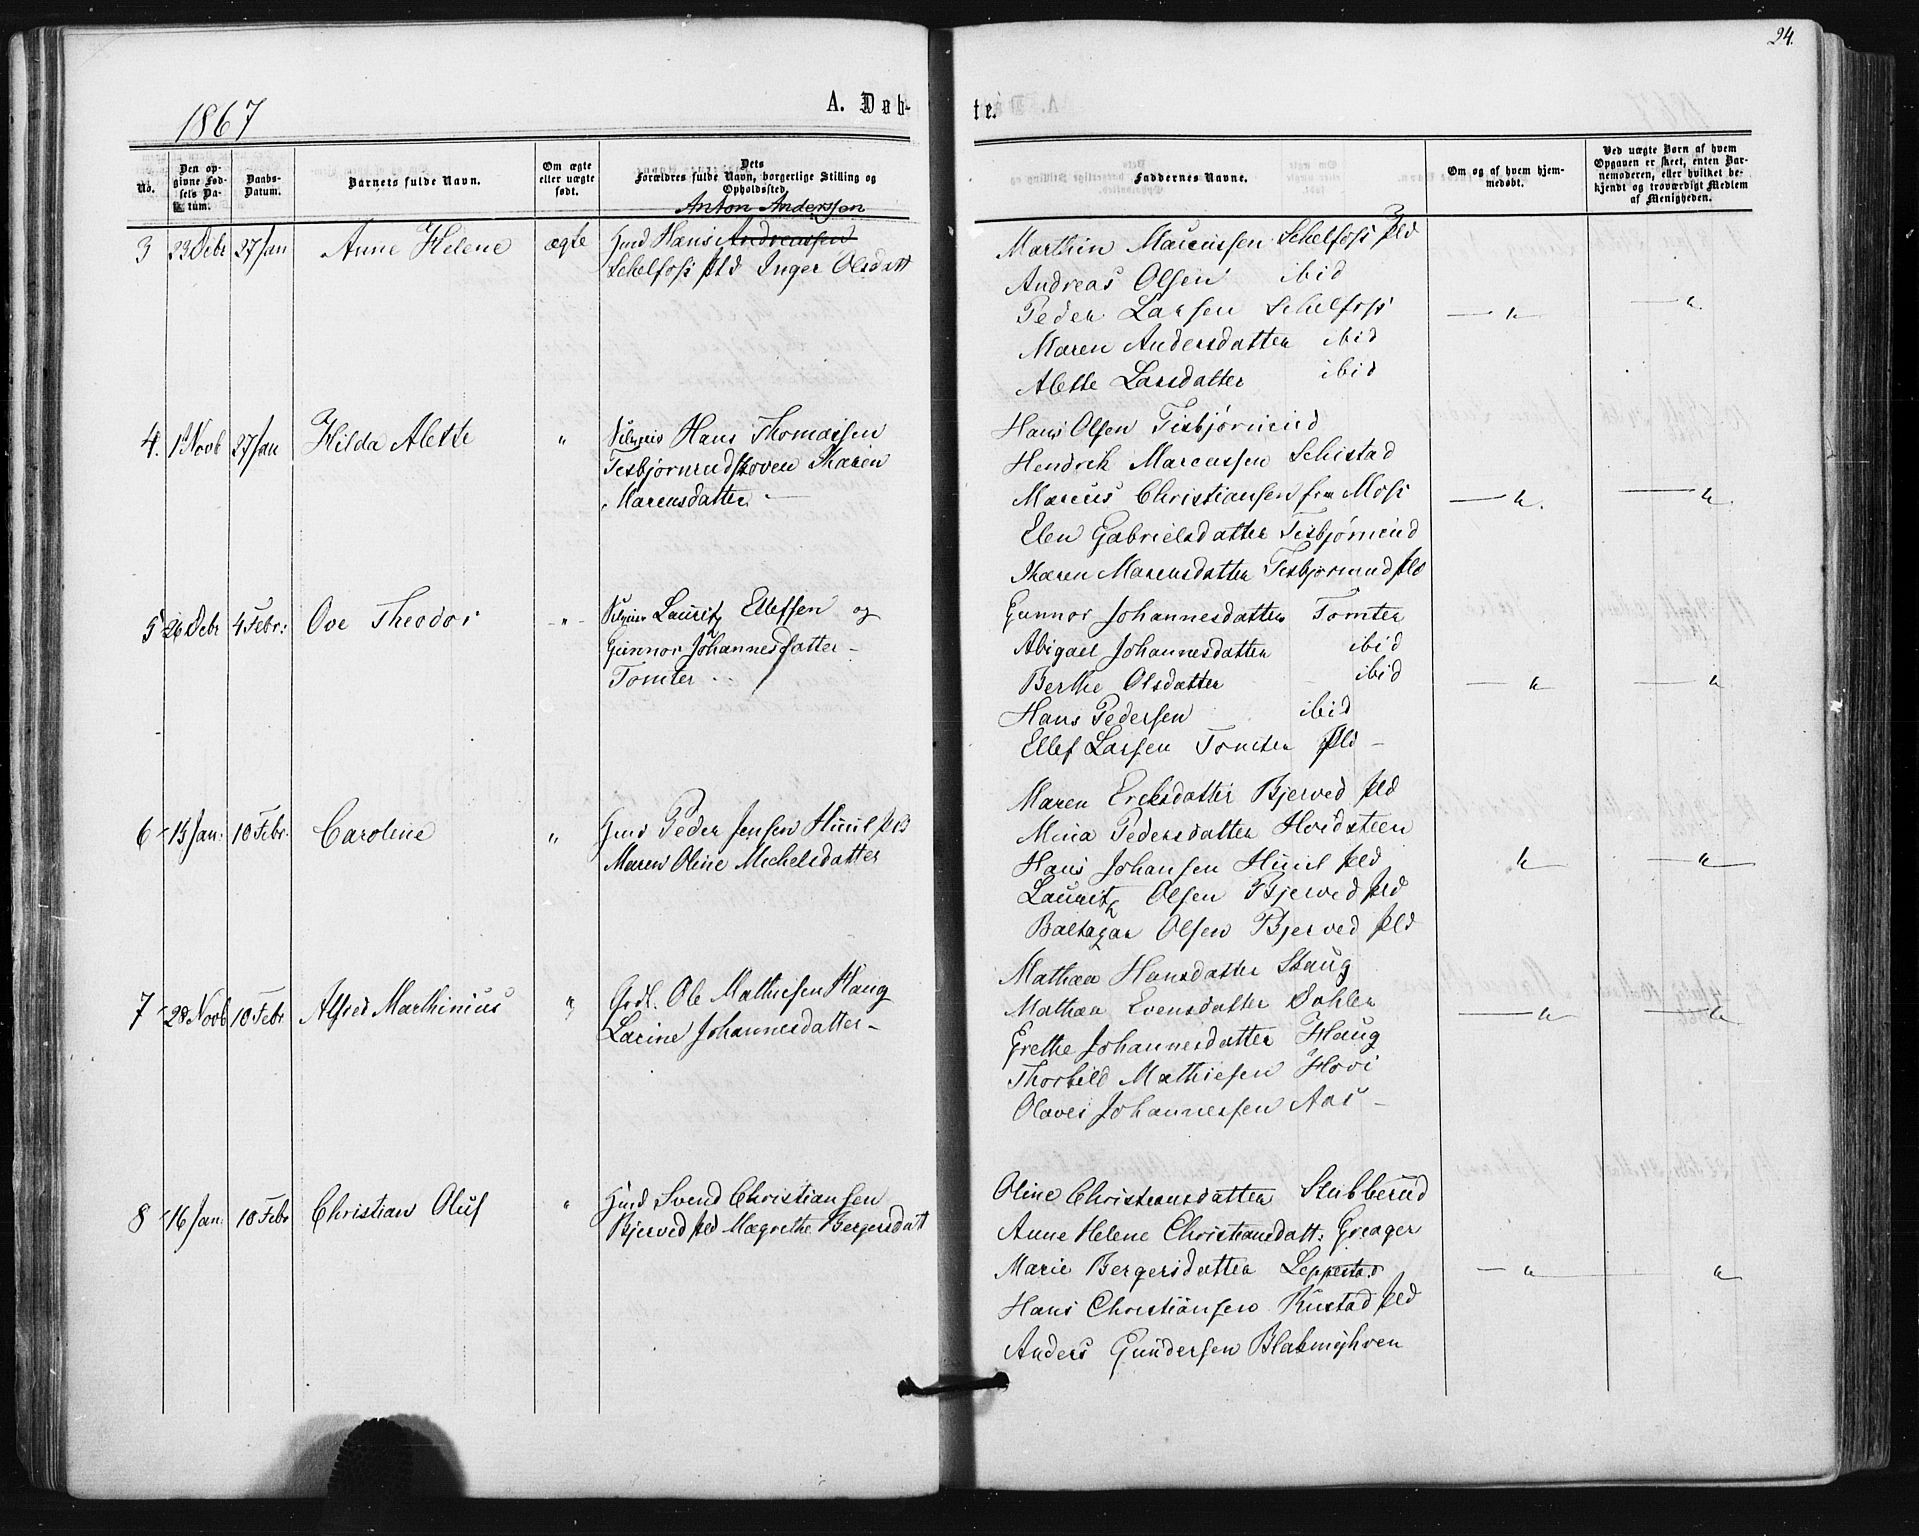 24.
1867
A. Døb-
te.
No.
Den op-
givne Fød-
sels Da-
tum.
Daabs-
Datum.
Barnets fulde Navn.
Om ægte
eller uægte
født.
Dets
Forældres fulde Navn, borgerlige Stilling og
Opholdssted.
Faddernes Navne.
Om og af hvem hjem-
medøbt.
Ved uægte Børn af hvem
Opgaven er skeet, enten Bar-
nemoderen, eller hvilket be-
kjendt og troværdigt Medlem
af Menigheden.
Anton Anderssen
3 23 Debr 27 Jan Anne Helene ægte Gmd Hans Andreassen
Schelfoss pld Inger Olsdatt
Marthin Marcussen Schelfoss pld
Andreas Olsen ibid
Peder Larsen Schelfoss
Maren Andersdatter ibid
Alette Larsdatter ibid
4. 1 Novb 27 Jan Hilda Alette " Hans Thomassen
Tesbjørnrudskoven Maren
Marcusdatter
Hans Olsen Tesbjørnrud
Hendrik Marcussen Schistad
Marcus Christiansen fra Moss
Elen Gabrielsdatter Tesbjørnrud
Maren Marcusdatter Tesbjørnrud pld
5 26 Debr 4 Febr: Ove Theodor " Lauritz Ellefsen og
Gunnor Johannesdatter
Tomter
Gunnor Johannesdatter Tomter
Abigael Johannesdatter ibid
Berthe Olsdatter ibid
Hans Pedersen ibid
Ellef Larsen Tomter pld
6 15 Jan: 10 Febr. Caroline " Gmd Peder Jensen Huul pld
Maren Oline Michelsdatter
Maren Ericksdatter Bjerved pld
Mina Pedersdatter Hvidsteen
Hans Johansen Huul pld
Lauritz Olsen Bjerved pld
Baltazar Olsen Bjerved pld
7 28 Novb 10 Febr Alfred Marthinius " Grdl. Ole Mathiesen Haug
Larine Johannesdatter
Mathea Hansdatter Skaug
Mathea Evensdatter Dahler
Grethe Johannesdatter Haug
Thorkild Mathiesen Hovi
Olaves Johannessen Aas
8 16 Jan: 10 Febr Christian Oluf " Gmd Svend Christiansen
Bjerved pld Magrethe Bergersdatt
Oline Christiansdatter Stubberud
Anne Helene Christiansdatt: Greager
Marie Bergersdatter Leppestad
Hans Christiansen Rustad pld
Anders Gundersen Blakmyhren